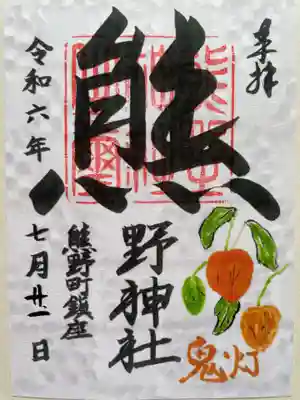 奉拝
熊
野神社
熊野町鎮座
令和六年
七月廿一日
鬼灯